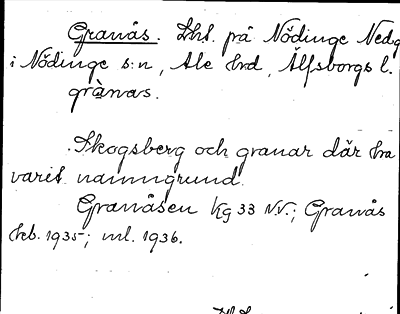 Granås. Lht. på Nödinge Nedg
i Nödinge s:n, Ale hrd, Älfsborgs l.
grànas.
Skogsberg och granar där ha
varit namngrund.
Granåsen kg 33 N.V.; Granås
hcb. 1935; ml. 1936.